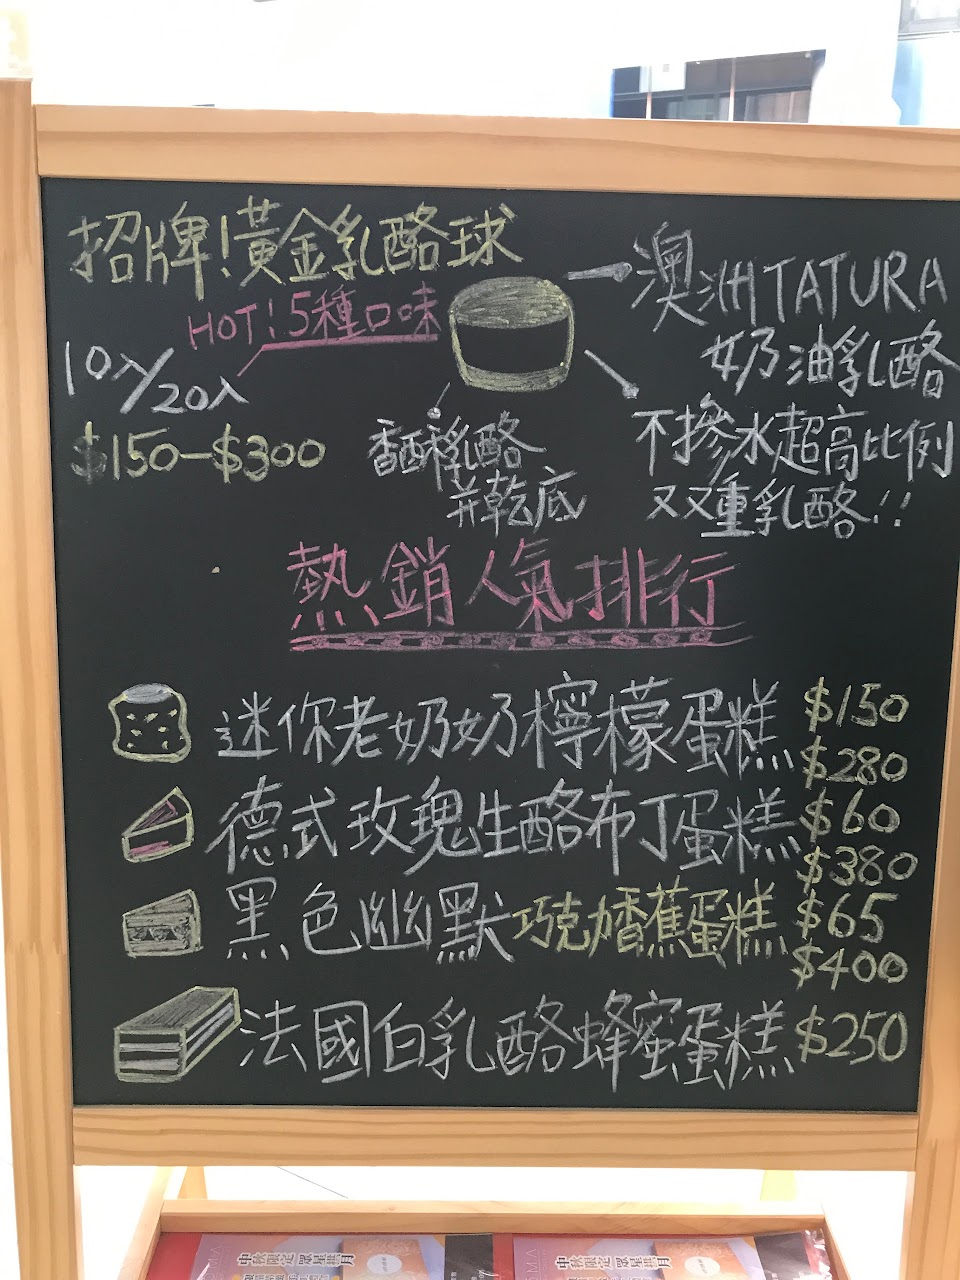 招牌!黃金乳酪球
HOT!5種口味
10入/20入
$150-$300
澳洲TATURA
奶油乳酪
不摻水超高比例
双双重乳酪!!
香酥乳酪
餅乾底
熱銷人氣排行
迷你老奶奶檸檬蛋糕 $150
$280
德式玫瑰生酪布丁蛋糕 $60
$380
黑色幽默巧克力香蕉蛋糕 $65
$400
法國白乳酪蜂蜜蛋糕 $250
中秋限定 眾星拱月
中秋限定 眾星拱月